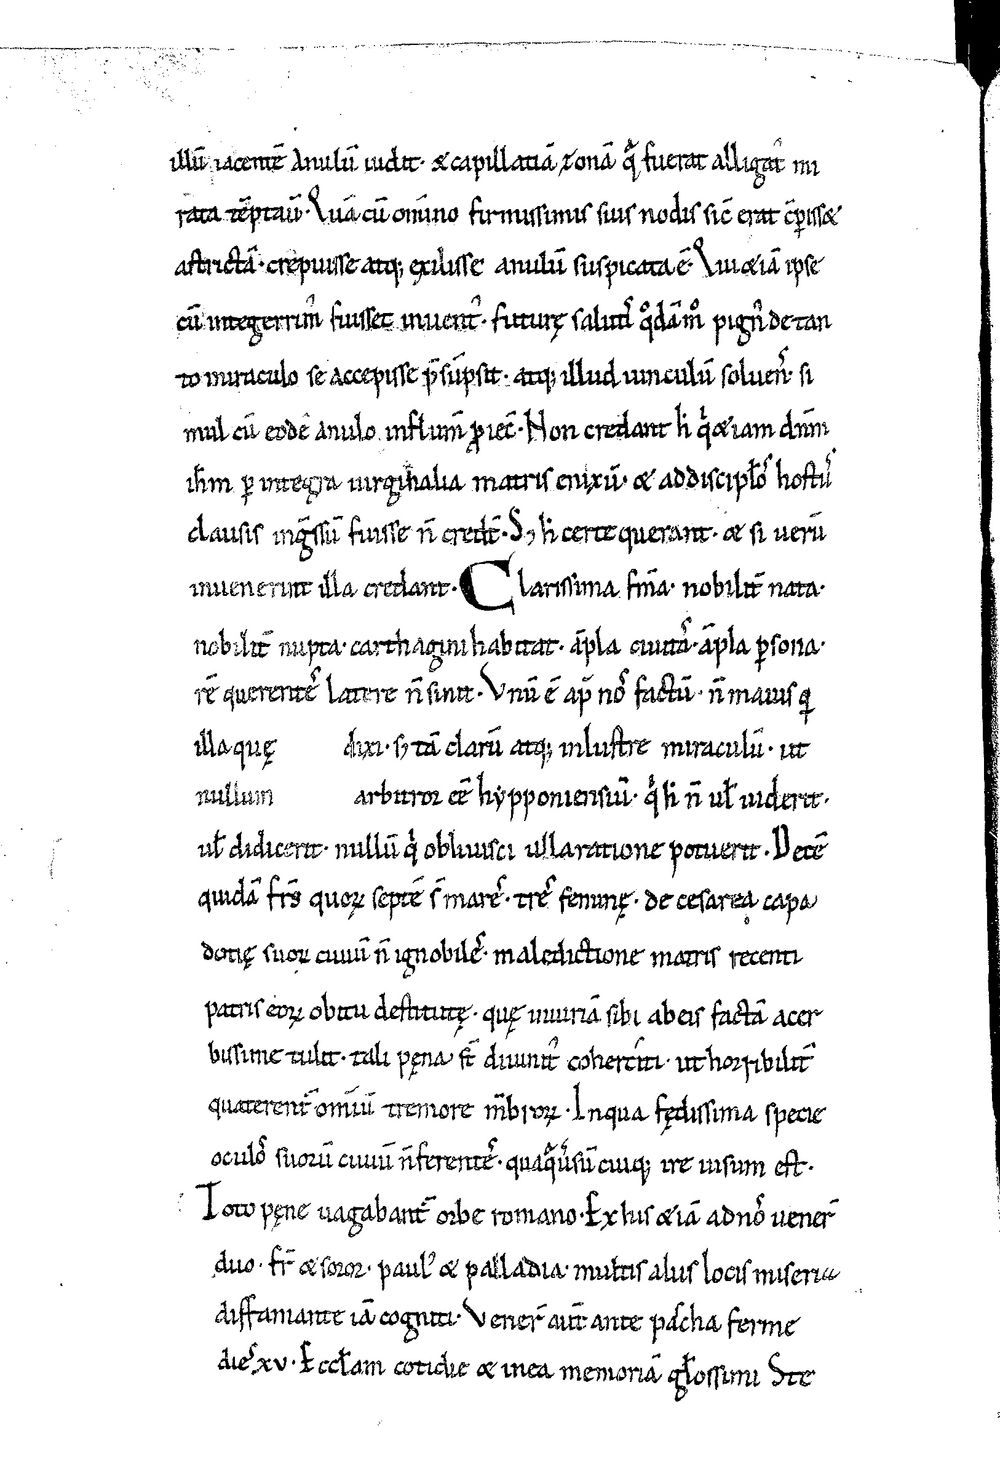 illū iacentē Anulū uidit· & capillatiā zonā q̄ fuerat alligat᷑ mi
rata tēptauit· Quā cū om̄ino firmissimis suis nodis sic̄ erat cp̄iss&
astrictā· crepuisse atq; exilisse anulū suspicata ē· Qui &iā ipse
cū integerrim᷑ fuisset inuent᷑· futurę salutis q°dām° pign᷑ de tan
to miraculo se accepisse p̄sūpsit· atq; illud uinculū soluens· si
mul cū eodē Anulo in flum̄ ꝓiec̄· Non credant h̄ qͥ &iam dnm̄
ihm̄ ꝑ integra uirginalia matris enixū· & ad discip̄los hostiis
clausis ing̃ssū fuisse n̄ credt̄· S; h̄ certe querant· & si uerū
inuenerint illa credant· Clarissima fem̄a· nobilit̄ nata·
nobilit̄ nupta· carthagini habitat· āpla ciuitas· āpla ꝑsona·
rē querentes latere n̄ sinit· Vnū ē ap̄ nos factū· n̄ maius q̄
illa quę dixi· s; tā clarū atq; inlustre miraculū· ut
nullum arbitror ēē hypponiensiū· qͥ h̄ n̄ ul̄ uiderit·
ul̄ didicerit· nullū qͥ obliuisci ulla ratione potuerit· Decē
quidā frs̄ quoꝝ septē s̄ mares· tres feminę· de cesarea capa
docię suoꝝ ciuiū n̄ ignobiles· maledictione matris recenti
patris eoꝝ obitu destitutę· quę iniuriā sibi ab eis factā acer
bissime tulit· tali pęna st̄ diuinit᷑ coherciti· ut horribilit᷑
quaterent᷑ omiū tremore mb̄roꝝ· In qua fędissima specie
oculos suorū ciuiū n̄ ferentes· quaq̄ūsū cuiq; ire uisum est·
Toto pęne uagabant᷑ orbe romano· Ex his &iā ad nos uener̄
duo· fr̄ & soror· paul᷑ & palladia· multis aliis locis miseria
diffamante iā cogniti· Vener̄ aut̄ ante pascha ferme
dies xv· Eccl̄am cotidie & in ea memoriā gl̄osissimi Ste